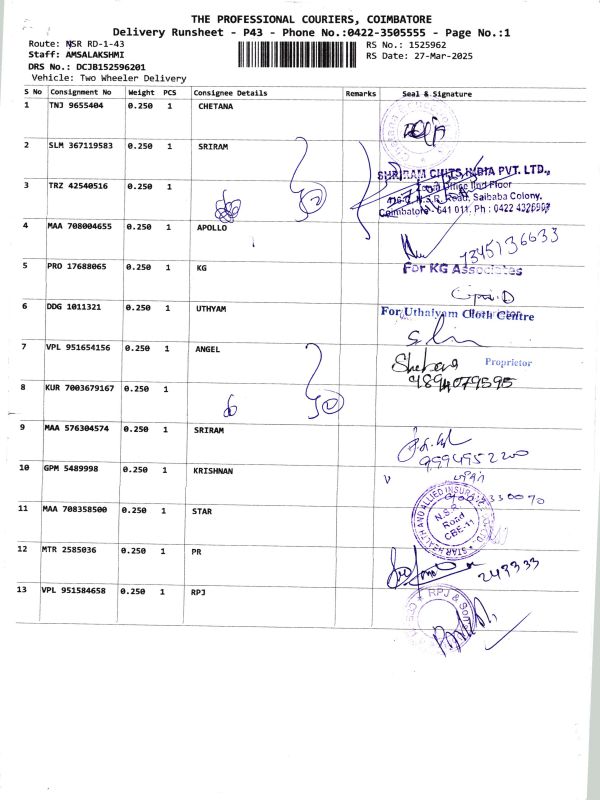 THE PROFESSIONAL COURIERS, COIMBATORE
Delivery Runsheet - P43 - Phone No.:0422-3505555 - Page No.:1
Route: NSR RD-1-43 RS No.: 1525962
Staff: AMSALAKSHMI RS Date: 27-Mar-2025
DRS No.: DCJB152596201
Vehicle: Two Wheeler Delivery
S No Consignment No Weight PCS Consignee Details Remarks Seal & Signature
1 TNJ 9655404 0.250 1 CHETANA
2 SLM 367119583 0.250 1 SRIRAM
SHRIRAM CHITS INDIA PVT. LTD.,
3 TRZ 42540516 0.250 1
IInd Floor
N.S.R. Road, Saibaba Colony,
Coimbatore - 641 011. Ph : 0422 4326907
4 MAA 708004655 0.250 1 APOLLO
7345136633
5 PRO 17688065 0.250 1 KG For KG Associates
6 DDG 1011321 0.250 1 UTHYAM For Uthaiyam Cloth Centre
7 VPL 951654156 0.250 1 ANGEL
Proprietor
4894079595
8 KUR 7003679167 0.250 1
9 MAA 576304574 0.250 1 SRIRAM
9994952200
10 GPM 5489998 0.250 1 KRISHNAN
11 MAA 708358500 0.250 1 STAR
STAR HEALTH AND ALLIED INSURANCE CO LTD
N.S.R.
Road
CBE-11
12 MTR 2585036 0.250 1 PR
249333
13 VPL 951584658 0.250 1 RPJ
RPJ & Sons